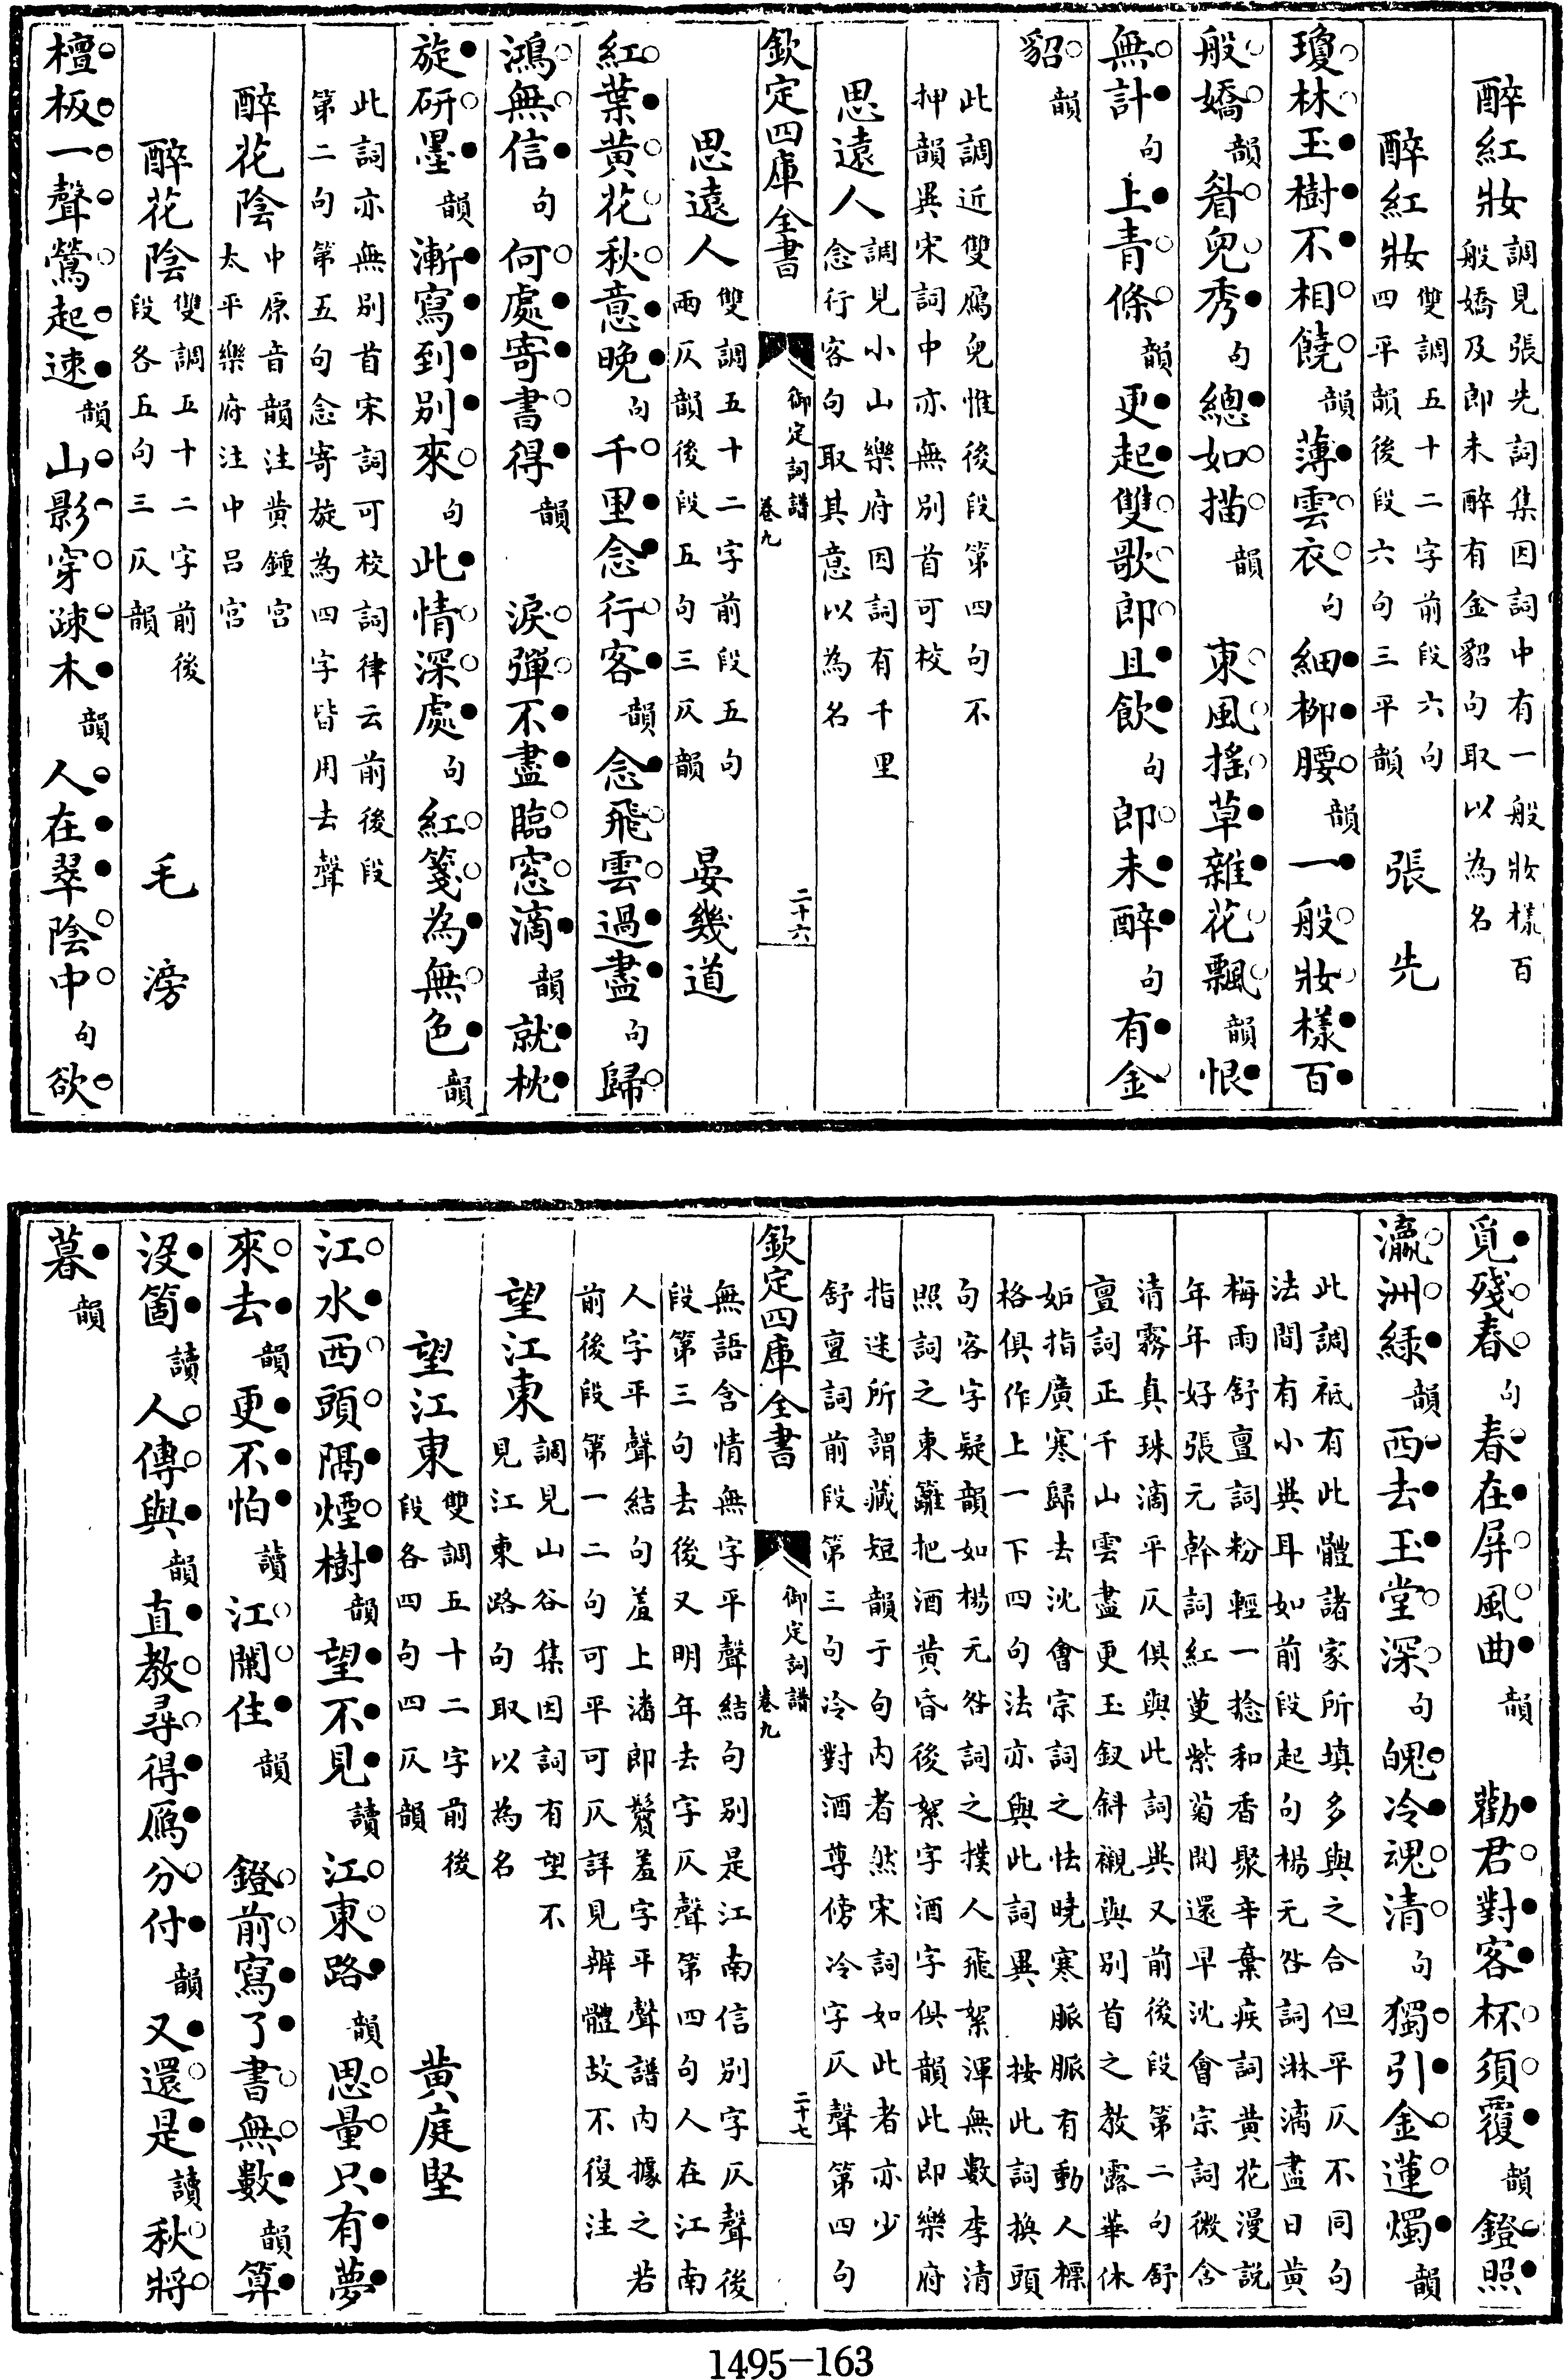 醉紅妝調見張先詞集因詞中有一般妝樣百般嬌及郎未醉有金貂句取以為名
醉紅妝雙調五十二字前段六句四平韻後段六句三平韻　張先
瓊林玉樹不相饒韻薄雲衣句細柳腰韻一般妝樣百
般嬌韻眉兒秀句總如描韻　東風搖草雜花飄韻恨
無計句上青條韻更起雙歌郎且飲句郎未醉句有金
貂韻
此調近雙鴈兒惟後段第四句不押韻異宋詞中亦無別首可校
思遠人調見小山樂府因詞有千里念行客句取其意以為名
欽定四庫全書　御定詞譜卷九　二十六
思遠人雙調五十二字前段五句兩仄韻後段五句三仄韻　晏幾道
紅葉黃花秋意晚句千里念行客韻念飛雲過盡句歸
鴻無信句何處寄書得韻　淚彈不盡臨窓滴韻就枕
旋研墨韻漸寫到別來句此情深處句紅箋為無色韻
此詞亦無別首宋詞可校詞律云前後段第二句第五句念寄旋為四字皆用去聲
醉花陰中原音韻注黃鍾宮太平樂府注中呂宮
醉花陰雙調五十二字前後段各五句三仄韻　毛滂
檀板一聲鶯起速韻山影穿疎木韻人在翠陰中句欲
覓殘春句春在屏風曲韻　勸君對客杯須覆韻鐙照
瀛洲綠韻西去玉堂深句魄冷魂清句獨引金蓮燭韻
此調祗有此體諸家所填多與之合但平仄不同句法間有小異耳如前段起句楊无咎詞淋漓盡日黃
梅雨舒亶詞粉輕一捻和香聚辛棄疾詞黃花漫說年年好張元幹詞紅蕖紫菊開還早沈會宗詞微含
清霧真珠滴平仄俱與此詞異又前後段第二句舒亶詞正千山雲盡更玉釵斜襯與別首之教露華休
妬指廣寒歸去沈會宗詞之怯曉寒脈脈有動人標格俱作上一下四句法亦與此詞異　按此詞換頭
句客字疑韻如楊无咎詞之撲人飛絮渾無數李清照詞之東籬把酒黃昏後絮字酒字俱韻此即樂府
指迷所謂藏短韻于句內者然宋詞如此者亦少　舒亶詞前段第三句冷對酒尊傍冷字仄聲第四句
欽定四庫全書　御定詞譜卷九　二十七
無語含情無字平聲結句別是江南信別字仄聲後段第三句去後又明年去字仄聲第四句人在江南
人字平聲結句羞上潘郎鬢羞字平聲譜內據之若前後段第一二句可平可仄詳見辨體故不復注
望江東調見山谷集因詞有望不見江東路句取以為名
望江東雙調五十二字前後段各四句四仄韻　黃庭堅
江水西頭隔煙樹韻望不見讀江東路韻思量只有夢
來去韻更不怕讀江闌住韻　鐙前寫了書無數韻算
沒箇讀人傳與韻直教尋得鴈分付韻又還是讀秋將
暮韻
1495—163